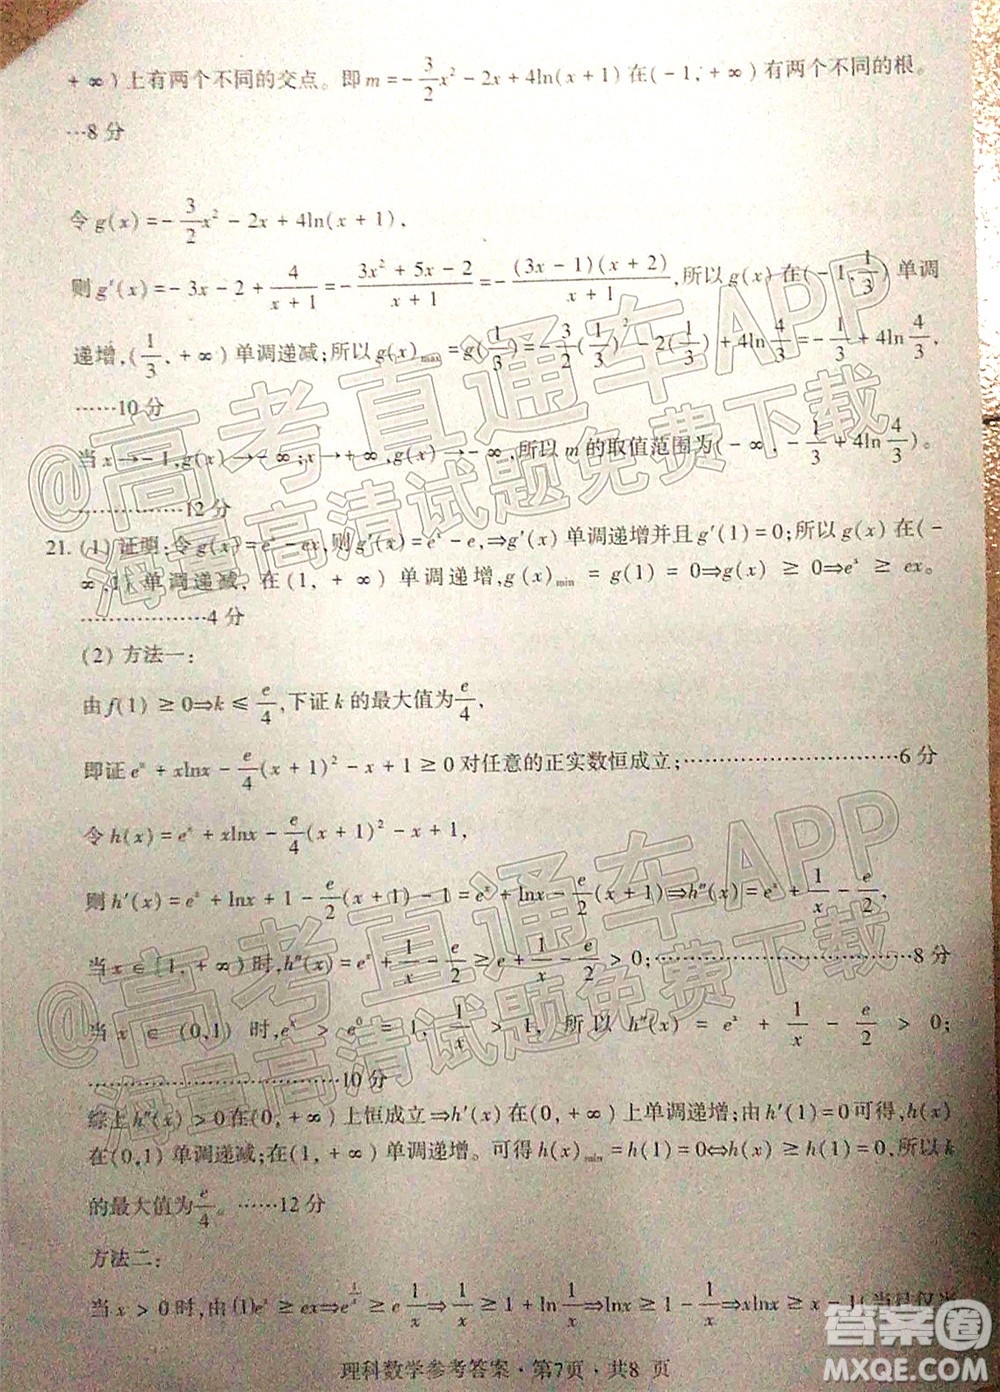 + ∞ ) 上有两个不同的交点。即 m = -3/2x² - 2x + 4ln(x + 1) 在 ( - 1, + ∞ ) 有两个不同的根。
…8 分
令 g(x) = -3/2x² - 2x + 4ln(x + 1),
则 g′(x) = - 3x - 2 + 4/(x + 1) = -(3x² + 5x - 2)/(x + 1) = -(3x - 1)(x + 2)/(x + 1), 所以 g(x) 在 ( - 1, 1/3) 单调
递增, (1/3, + ∞ ) 单调递减; 所以 g(x)max = g(1/3) = -3/2(1/3)² - 2(1/3) + 4ln4/3 = -5/6 + 4ln4/3,
……10 分
当 x→ - 1, g(x)→ - ∞; x→ + ∞, g(x)→ - ∞, 所以 m 的取值范围为 ( - ∞, -1/3 + 4ln4/3)。
………………12 分
21. (1) 证明: 令 g(x) = eˣ - ex, 则 g′(x) = eˣ - e, ⇒g′(x) 单调递增并且 g′(1) = 0; 所以 g(x) 在 ( -
∞, 1) 单调递减, 在 (1, + ∞ ) 单调递增, g(x)min = g(1) = 0⇒g(x) ≥ 0⇒eˣ ≥ ex。
…………………4 分
(2) 方法一:
由 f(1) ≥ 0⇒k ≤ e/4, 下证 k 的最大值为 e/4,
即证 eˣ + xlnx - e/4(x + 1)² - x + 1 ≥ 0 对任意的正实数恒成立; ……………………………6 分
令 h(x) = eˣ + xlnx - e/4(x + 1)² - x + 1,
则 h′(x) = eˣ + lnx + 1 - e/2(x + 1) - 1 = eˣ + lnx - e/2(x + 1)⇒h″(x) = eˣ + 1/x - e/2,
当 x ∈ [1, + ∞ ) 时, h″(x) = eˣ + 1/x - e/2 ≥ e + 1/x - e/2 > 0; ……………………………………8 分
当 x ∈ (0,1) 时, eˣ > e⁰ = 1, 1/x > 1, 所以 h″(x) = eˣ + 1/x - e/2 > 0;
……………………………………10 分
综上 h″(x) > 0 在 (0, + ∞ ) 上恒成立⇒h′(x) 在 (0, + ∞ ) 上单调递增; 由 h′(1) = 0 可得, h(x)
在 (0,1) 单调递减; 在 (1, + ∞ ) 单调递增。可得 h(x)min = h(1) = 0⇒h(x) ≥ h(1) = 0, 所以 k
的最大值为 e/4。……12 分
方法二:
当 x > 0 时, 由 (1)eˣ ≥ ex⇒e^(1/x) ≥ e 1/x⇒1/x ≥ 1 + ln1/x⇒lnx ≥ 1 - 1/x⇒xlnx ≥ x - 1 (当且仅当
理科数学参考答案 · 第7页 · 共8 页
@高考直通车APP
海量高清试题免费下载
@高考直通车APP
海量高清试题免费下载
答案圈
MXQE.COM